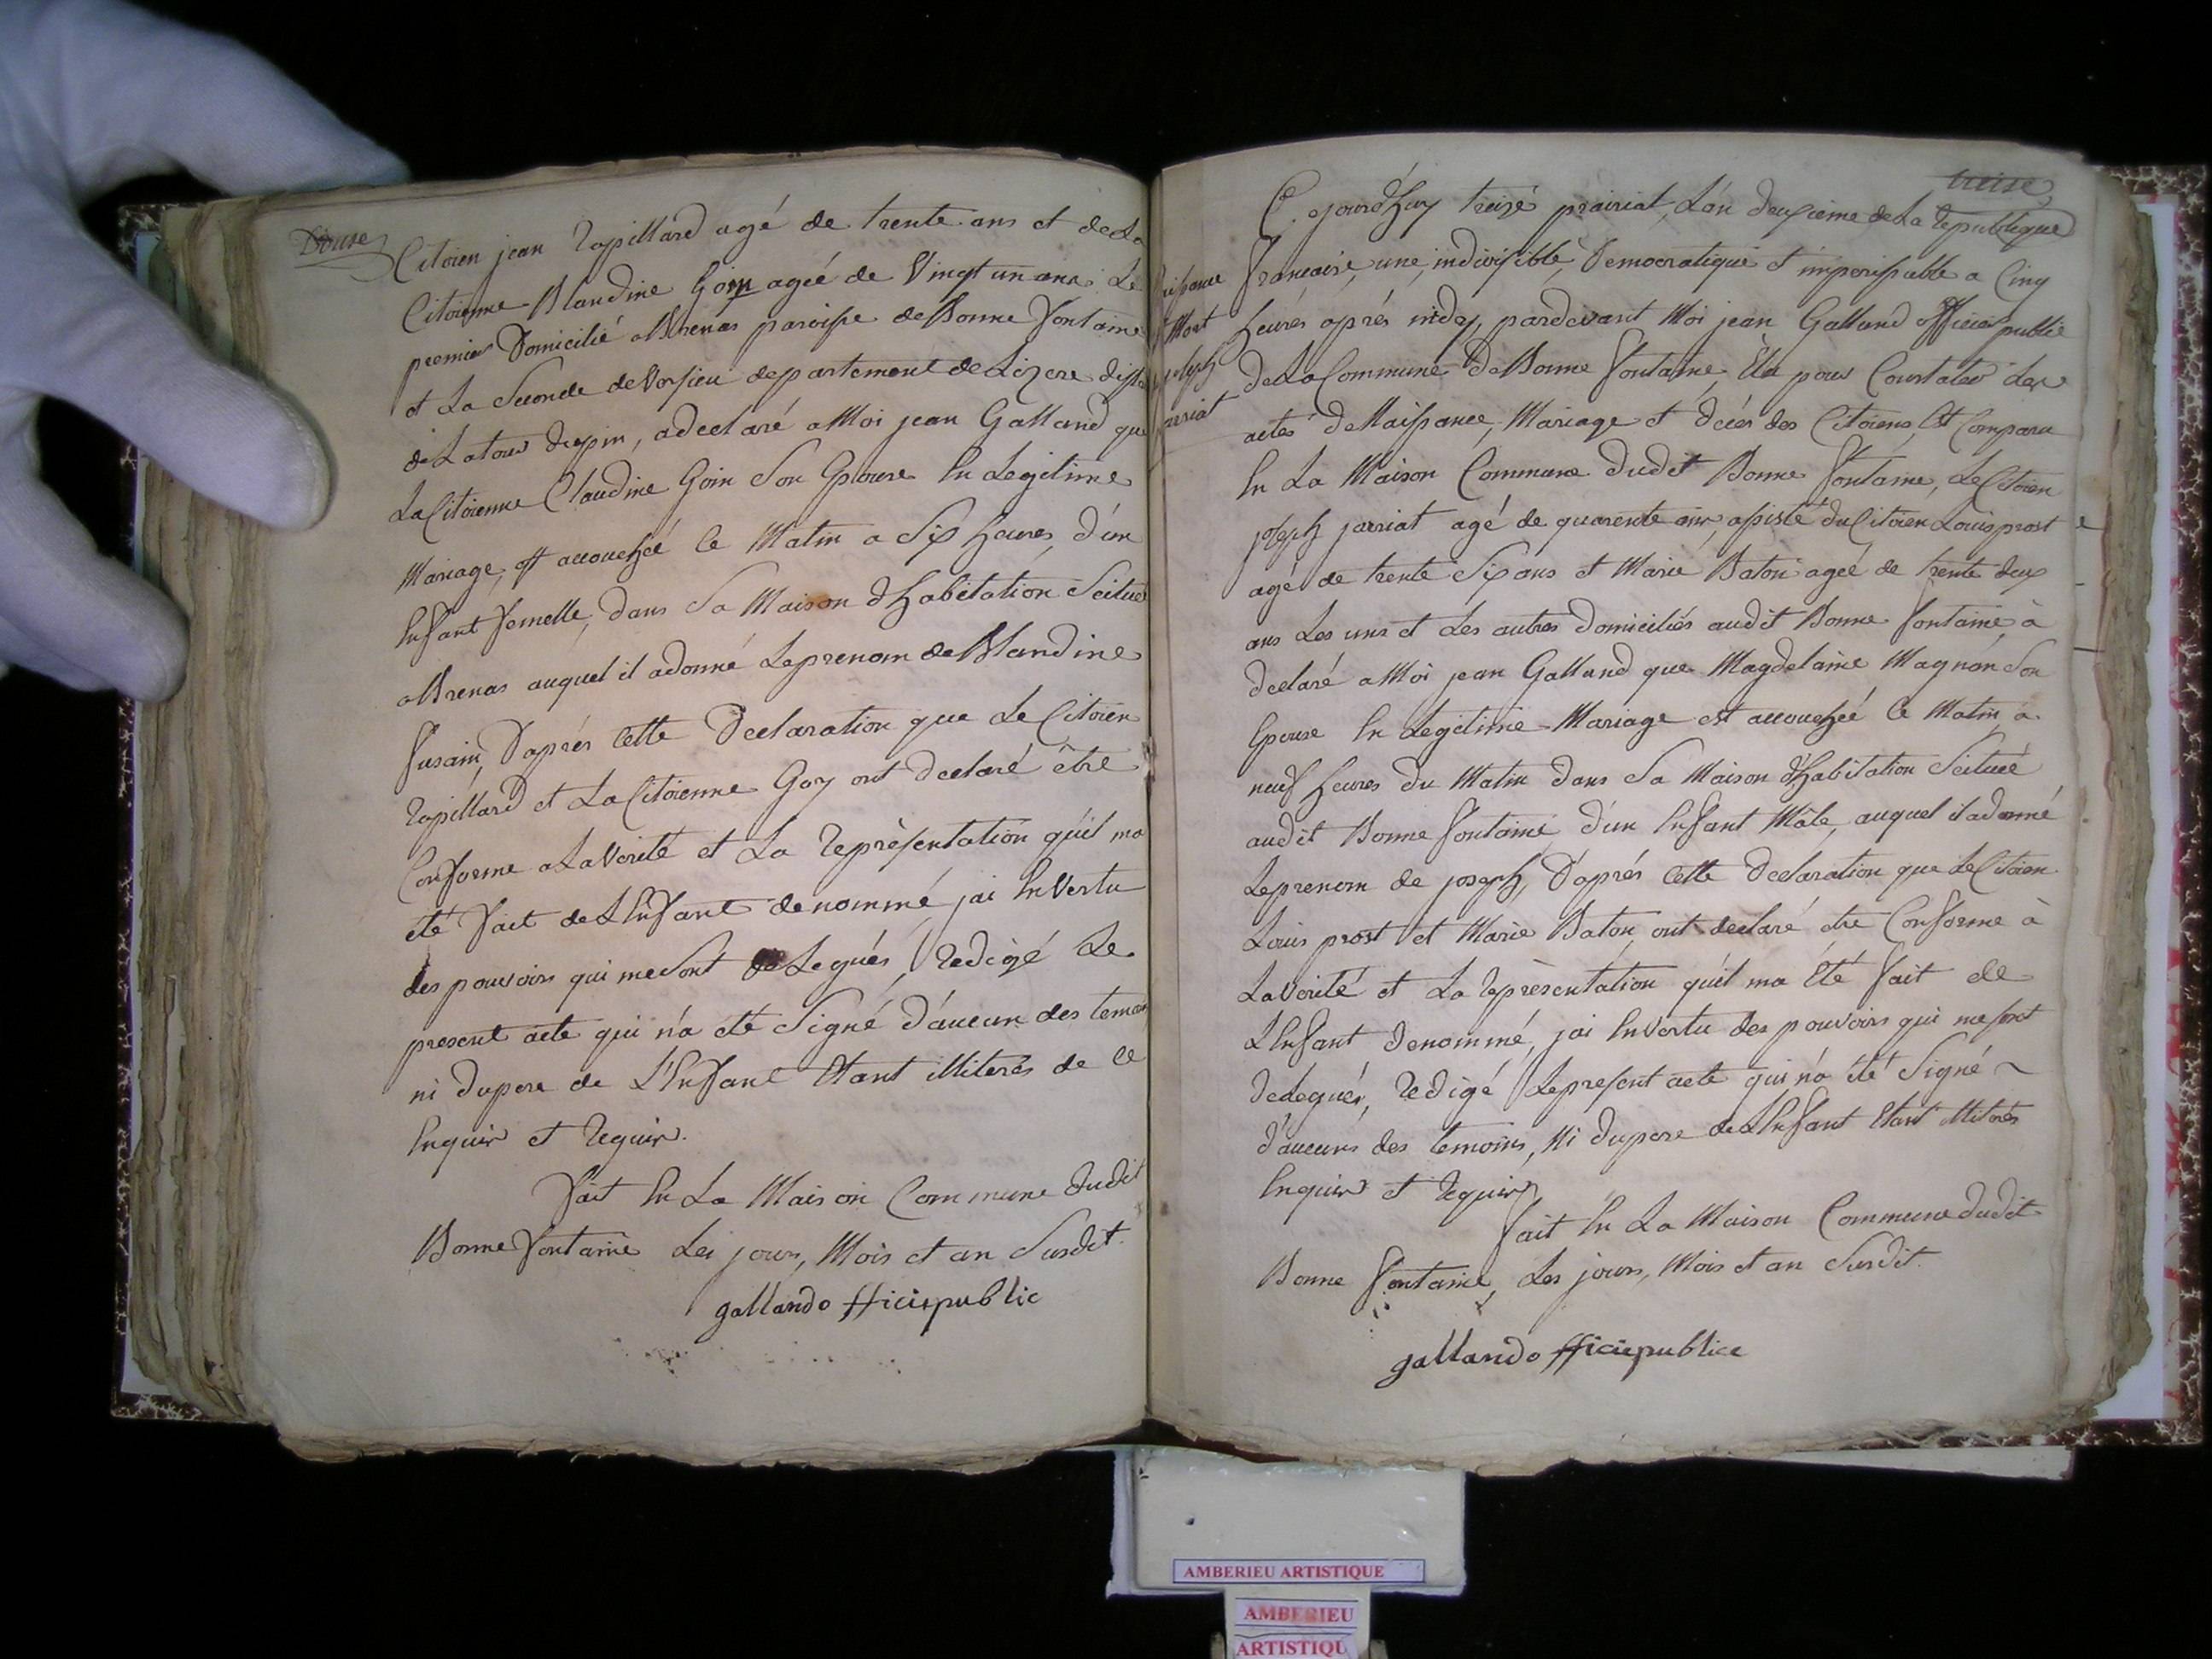 Douse
Citoien jean Rapillard agé de trente ans et de La
Citoienne Blandine Goin agéé de Vingt un ans Le
premier Domicilié a Brenas paroisse de Bonne Fontaine
et La Seconde de Vossieu departement de Lizere distr
de Latour dupin, a declaré a Moi jean Galland que
La Citoienne Claudine Goin Son Epouse En Legitime
Mariage, est accouchéé Ce Matin a Six heures, d'un
Enfant femelle, dans Sa Maison d'habitation Scitue
a Brenas auquel il a donné Le prenom de Blandine
Susain, D'aprés Cette Declaration que Le Citoien
Rapillard et La Citoienne Goy ont declaré être
Conforme a La Verité et La Représentation qu'il ma
été fait de L'Enfant denommé, jai En Vertu
des pouvoirs qui me Sont de Legués, Redigé Le
present acte qui n'a été Signé d'aucun des temoins
ni du pere de L'Enfant Etant illiterés de Ce
Enquir et Requir.
Fait En La Maison Commune dudit
Bonne Fontaine Les jours, Mois et an Susdit.
gallando fficiepublic
treise
Ce jourd'huy treizé prairiat, L'an deuxieme de La Republique
Francaise, une, indivisible, Democratique et imperissable a Cinq
heures aprés midy, pardevant Moi jean Galland officier public
de La Commune de Bonne Fontaine, Elu pour Constater Les
actes de Naissance, Mariage et décés des Citoiens, Est Comparu
En La Maison Commune dudit Bonne Fontaine, Le Citoien
joseph jarriat agé de quarente ans, assisté du Citoien Louis prost
agé de trente Six ans et Marie Baton agéé de trente deux
ans Les uns et Les autres domiciliés audit Bonne Fontaine, à
declaré a Moi jean Galland que Magdelaine Magnon Son
Epouse En Legitime Mariage est accouchéé Ce Matin a
neuf heures du Matin dans Sa Maison d'habitation Scituéé
audit Bonne Fontaine d'un Enfant Mâle, auquel il a donné
Le prenom de joseph, D'aprés Cette Declaration que Le Citoien
Louis prost et Marie Baton ont declaré etre Conforme à
La Verité et La Représentation qu'il ma Eté fait de
L'Enfant denommé, jai En Vertu des pouvoirs qui me sont
deLegués, Redigé Le present acte qui n'a été Signé
d'aucuns des temoins, Ni du pere de L'Enfant Etant illiterés
Enquir et Requir
Fait En La Maison Commune dudit
Bonne Fontaine, Les jours, Mois et an Susdit.
gallando fficiepublice
Naissance
Mort
joseph
jarriat
AMBERIEU ARTISTIQUE
AMBERIEU
ARTISTIQU